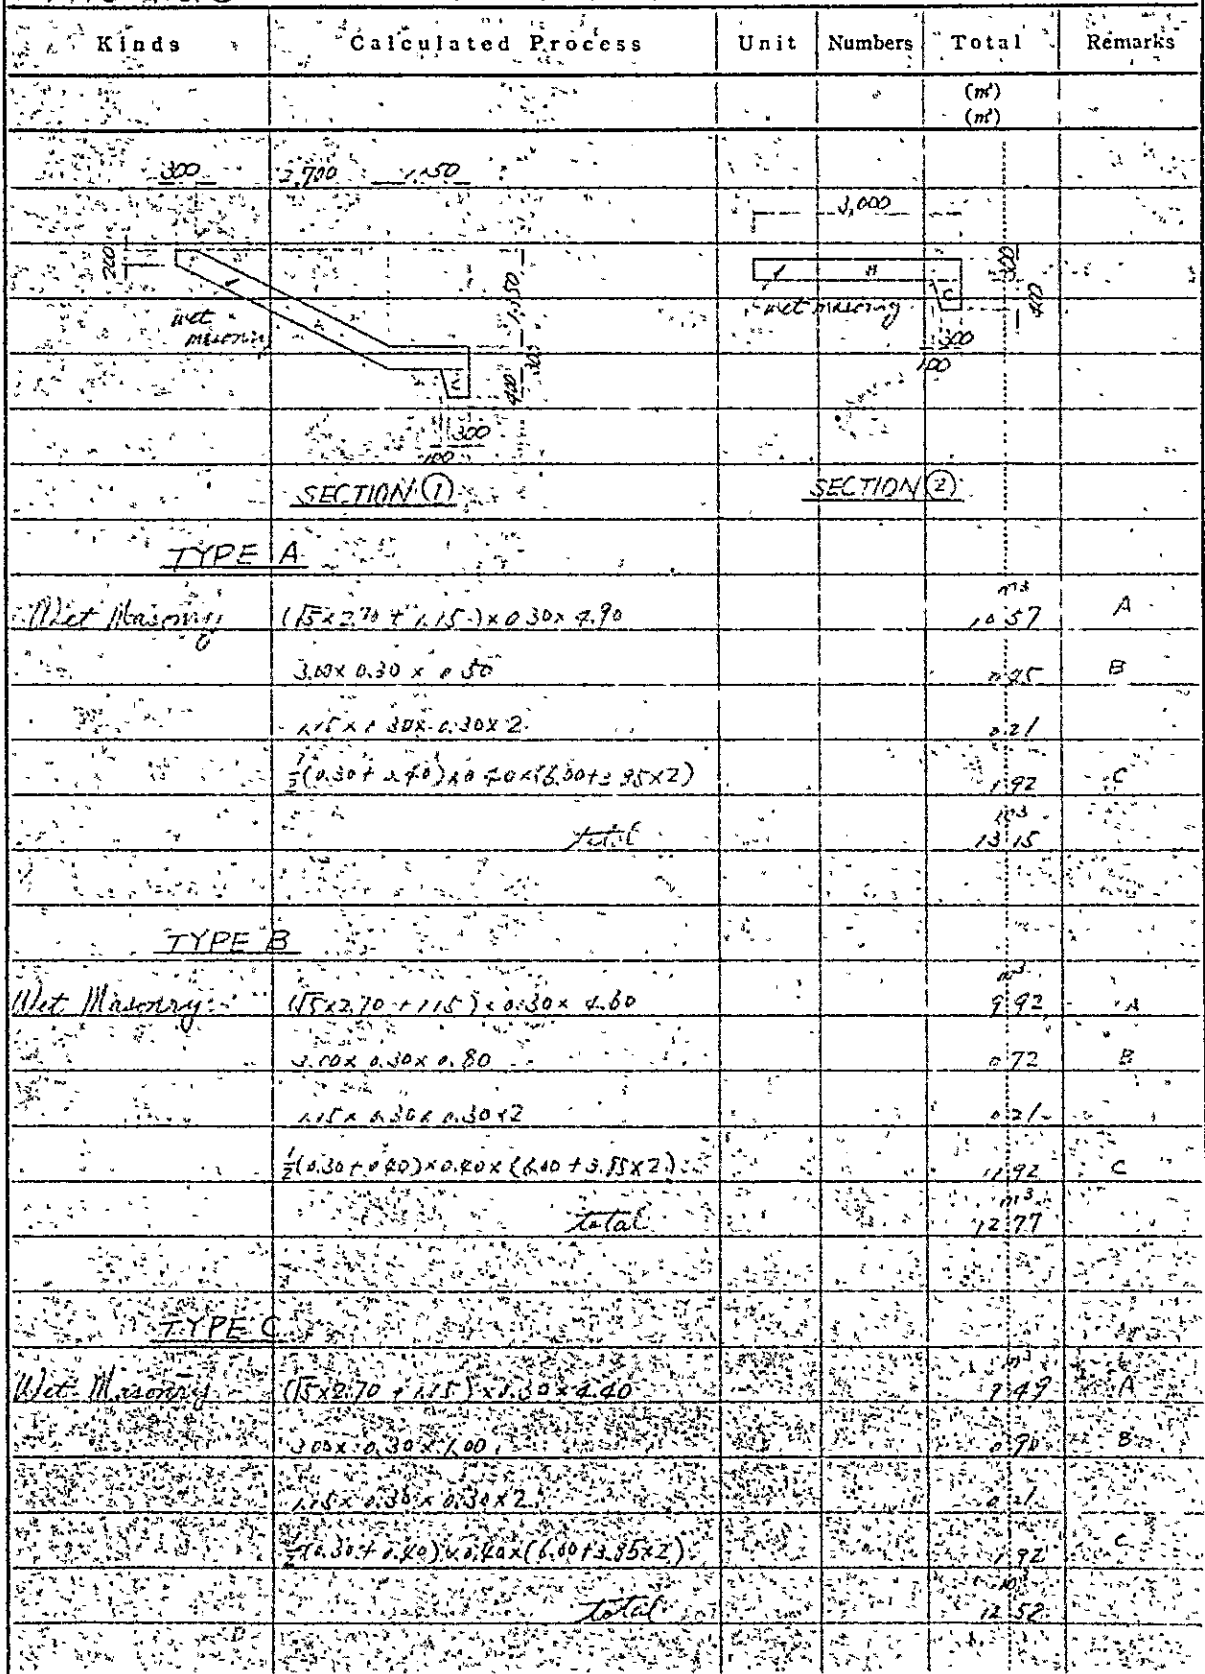 Kinds Calculated Process Unit Numbers Total Remarks
(m²)
(m²)
300 2,700 1,150
3,000
200
wet masonry
1,150
300
400
300
100
wet masonry
300
400
300
100
C
SECTION ① SECTION ②
TYPE A
m3
Wet Masonry (√5×2.70 + 1.15) × 0.30 × 4.90 10.57 A
3.00 × 0.30 × 0.50 0.45 B
1.15 × 0.30 × 0.30 × 2 0.21
½(0.30 + 0.40) × 0.40 × (6.00 + 3.85×2) 1.92 C
m3
total 13.15
TYPE B
m3
Wet Masonry (√5×2.70 + 1.15) × 0.30 × 4.60 9.92 A
3.00 × 0.30 × 0.80 0.72 B
1.15 × 0.30 × 0.30 × 2 0.21
½(0.30 + 0.40) × 0.40 × (6.00 + 3.85×2) 1.92 C
m3
total 12.77
TYPE C
m3
Wet Masonry (√5×2.70 + 1.15) × 0.30 × 4.40 9.49 A
3.00 × 0.30 × 1.00 0.90 B
1.15 × 0.30 × 0.30 × 2 0.21
½(0.30 + 0.40) × 0.40 × (6.00 + 3.85×2) 1.92 C
total 12.52